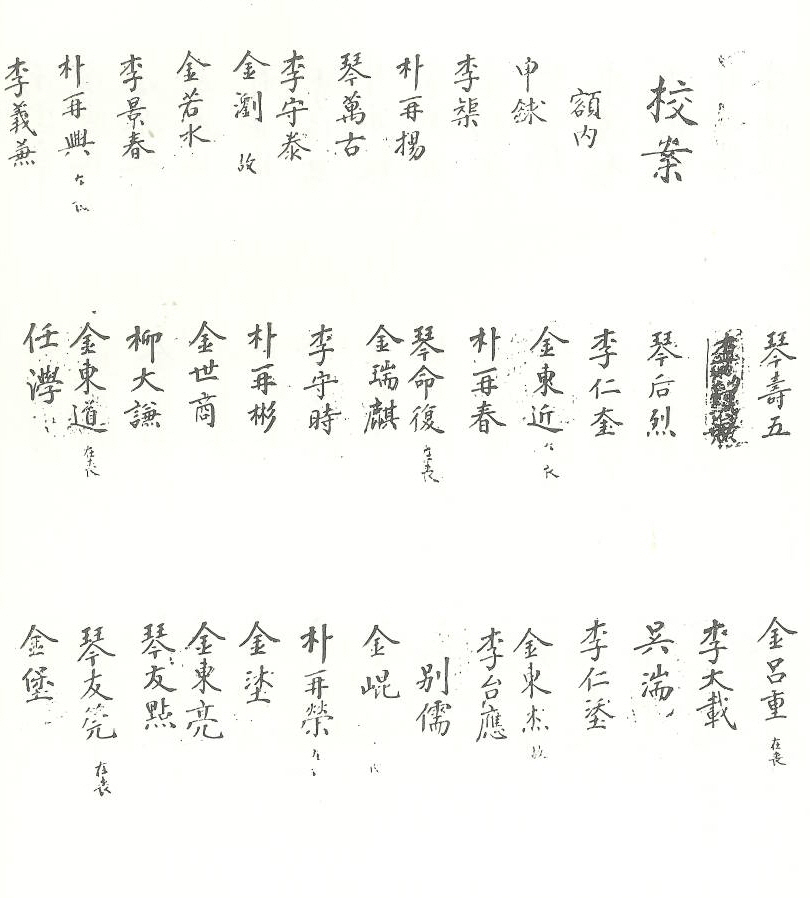 校案
額内
申銶
李榘
朴再揚
琴萬古
李守泰
金瀏 故
金若水
李景春
朴再興
李義兼
琴壽五
琴后烈
李仁奎
金東近
朴再春
琴命復 在喪
金瑞麒
李守時
朴再彬
金世商
柳大謙
金東道 在喪
任㶅
金呂重 在喪
李大載
吳湍
李仁塗
金東杰 故
李台應
別儒
金崐
朴再榮
金塗
金東亮
琴友點
琴友筦 在喪
金堡